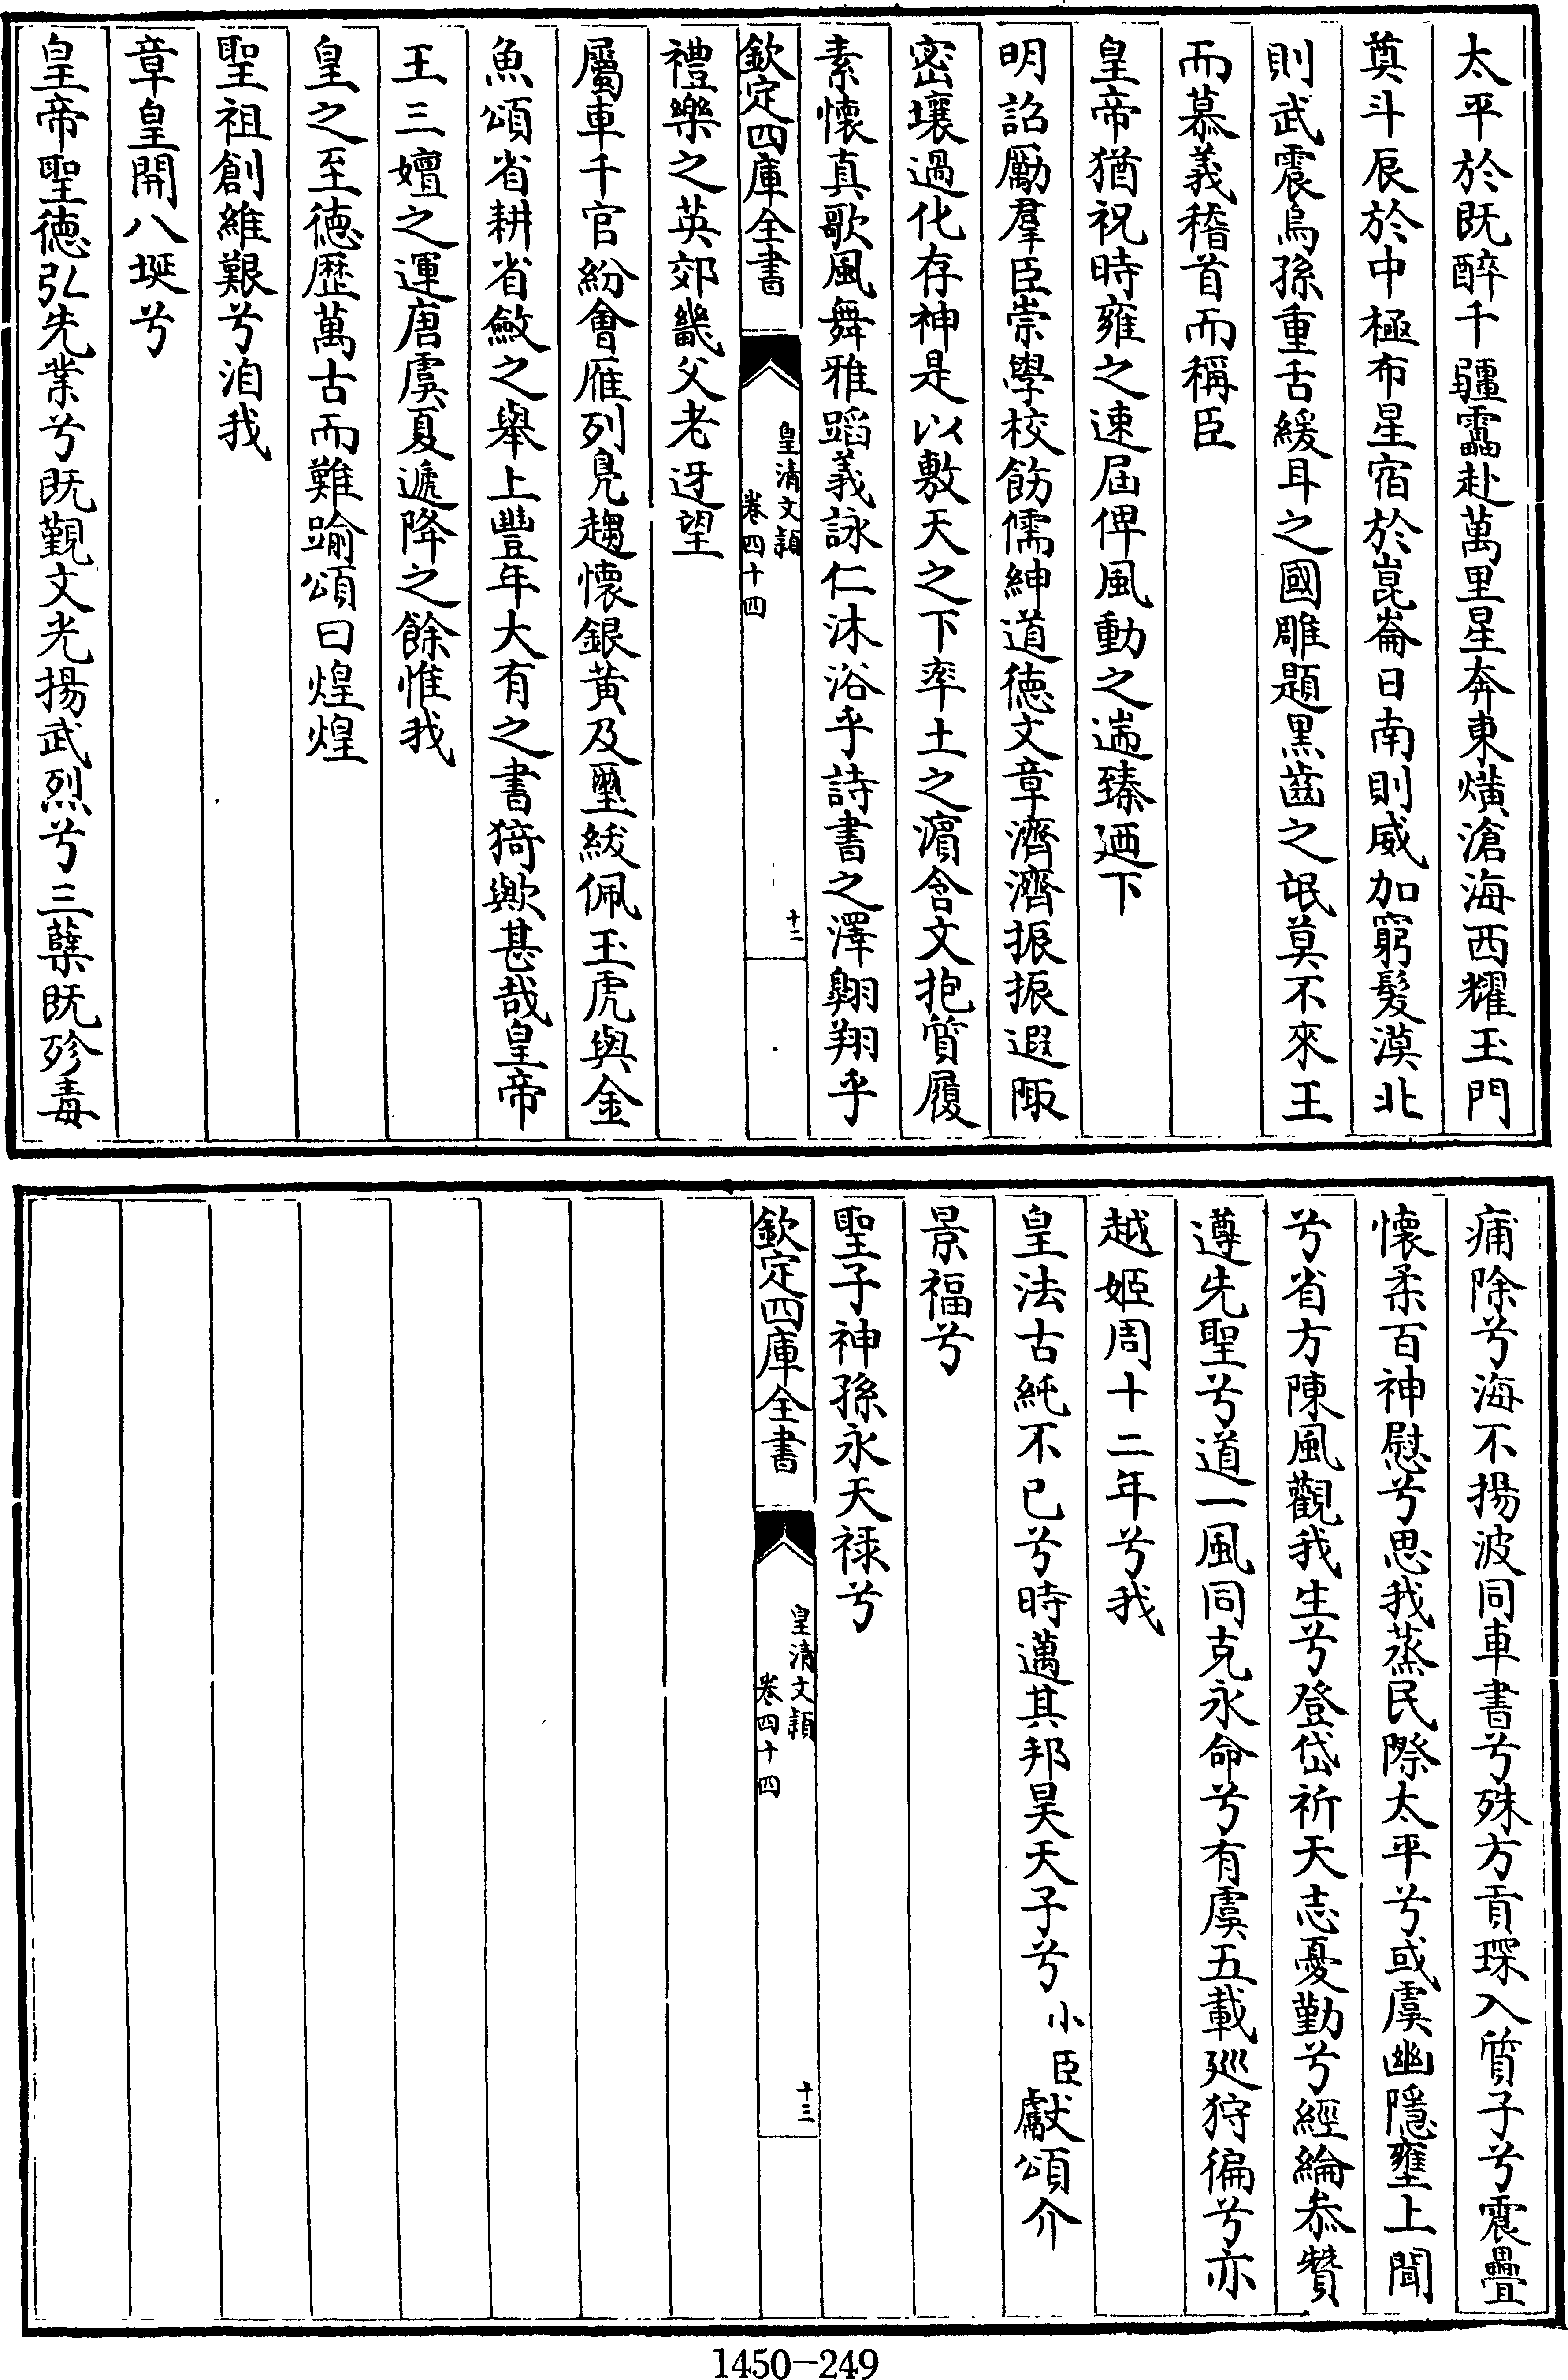 太平於既醉千疆霤赴萬里星奔東爌滄海西耀玉門
奠斗辰於中極布星宿於崑崙日南則威加窮髮漠北
則武震烏孫重舌緩耳之國雕題黒齒之氓莫不來王
而慕義稽首而稱臣
皇帝猶祝時雍之速屆俾風動之遄臻廼下
明詔勵羣臣崇學校飭儒紳道德文章濟濟振振遐陬
密壤過化存神是以敷天之下率土之濱含文抱質履
素懷真歌風舞雅蹈義詠仁沐浴乎詩書之澤翺翔乎
欽定四庫全書
皇清文穎
卷四十四
十二
禮樂之英郊畿父老迓望
屬車千官紛會雁列鳧趨懷銀黃及璽紱佩玉虎與金
魚頌省耕省斂之舉上豐年大有之書猗歟甚哉皇帝
王三嬗之運唐虞夏遞降之餘惟我
皇之至德歴萬古而難踰頌曰煌煌
聖祖創維艱兮洎我
章皇開八埏兮
皇帝聖德弘先業兮既覲文光揚武烈兮三蘖既殄毒
痡除兮海不揚波同車書兮殊方貢琛入質子兮震疊
懷柔百神慰兮思我蒸民際太平兮或虞幽隱壅上聞
兮省方陳風觀我生兮登岱祈天志憂勤兮經綸叅贊
遵先聖兮道一風同克永命兮有虞五載廵狩徧兮亦
越姬周十二年兮我
皇法古純不已兮時邁其邦昊天子兮小臣獻頌介
景福兮
聖子神孫永天禄兮
欽定四庫全書
皇清文穎
卷四十四
十三
1450-249